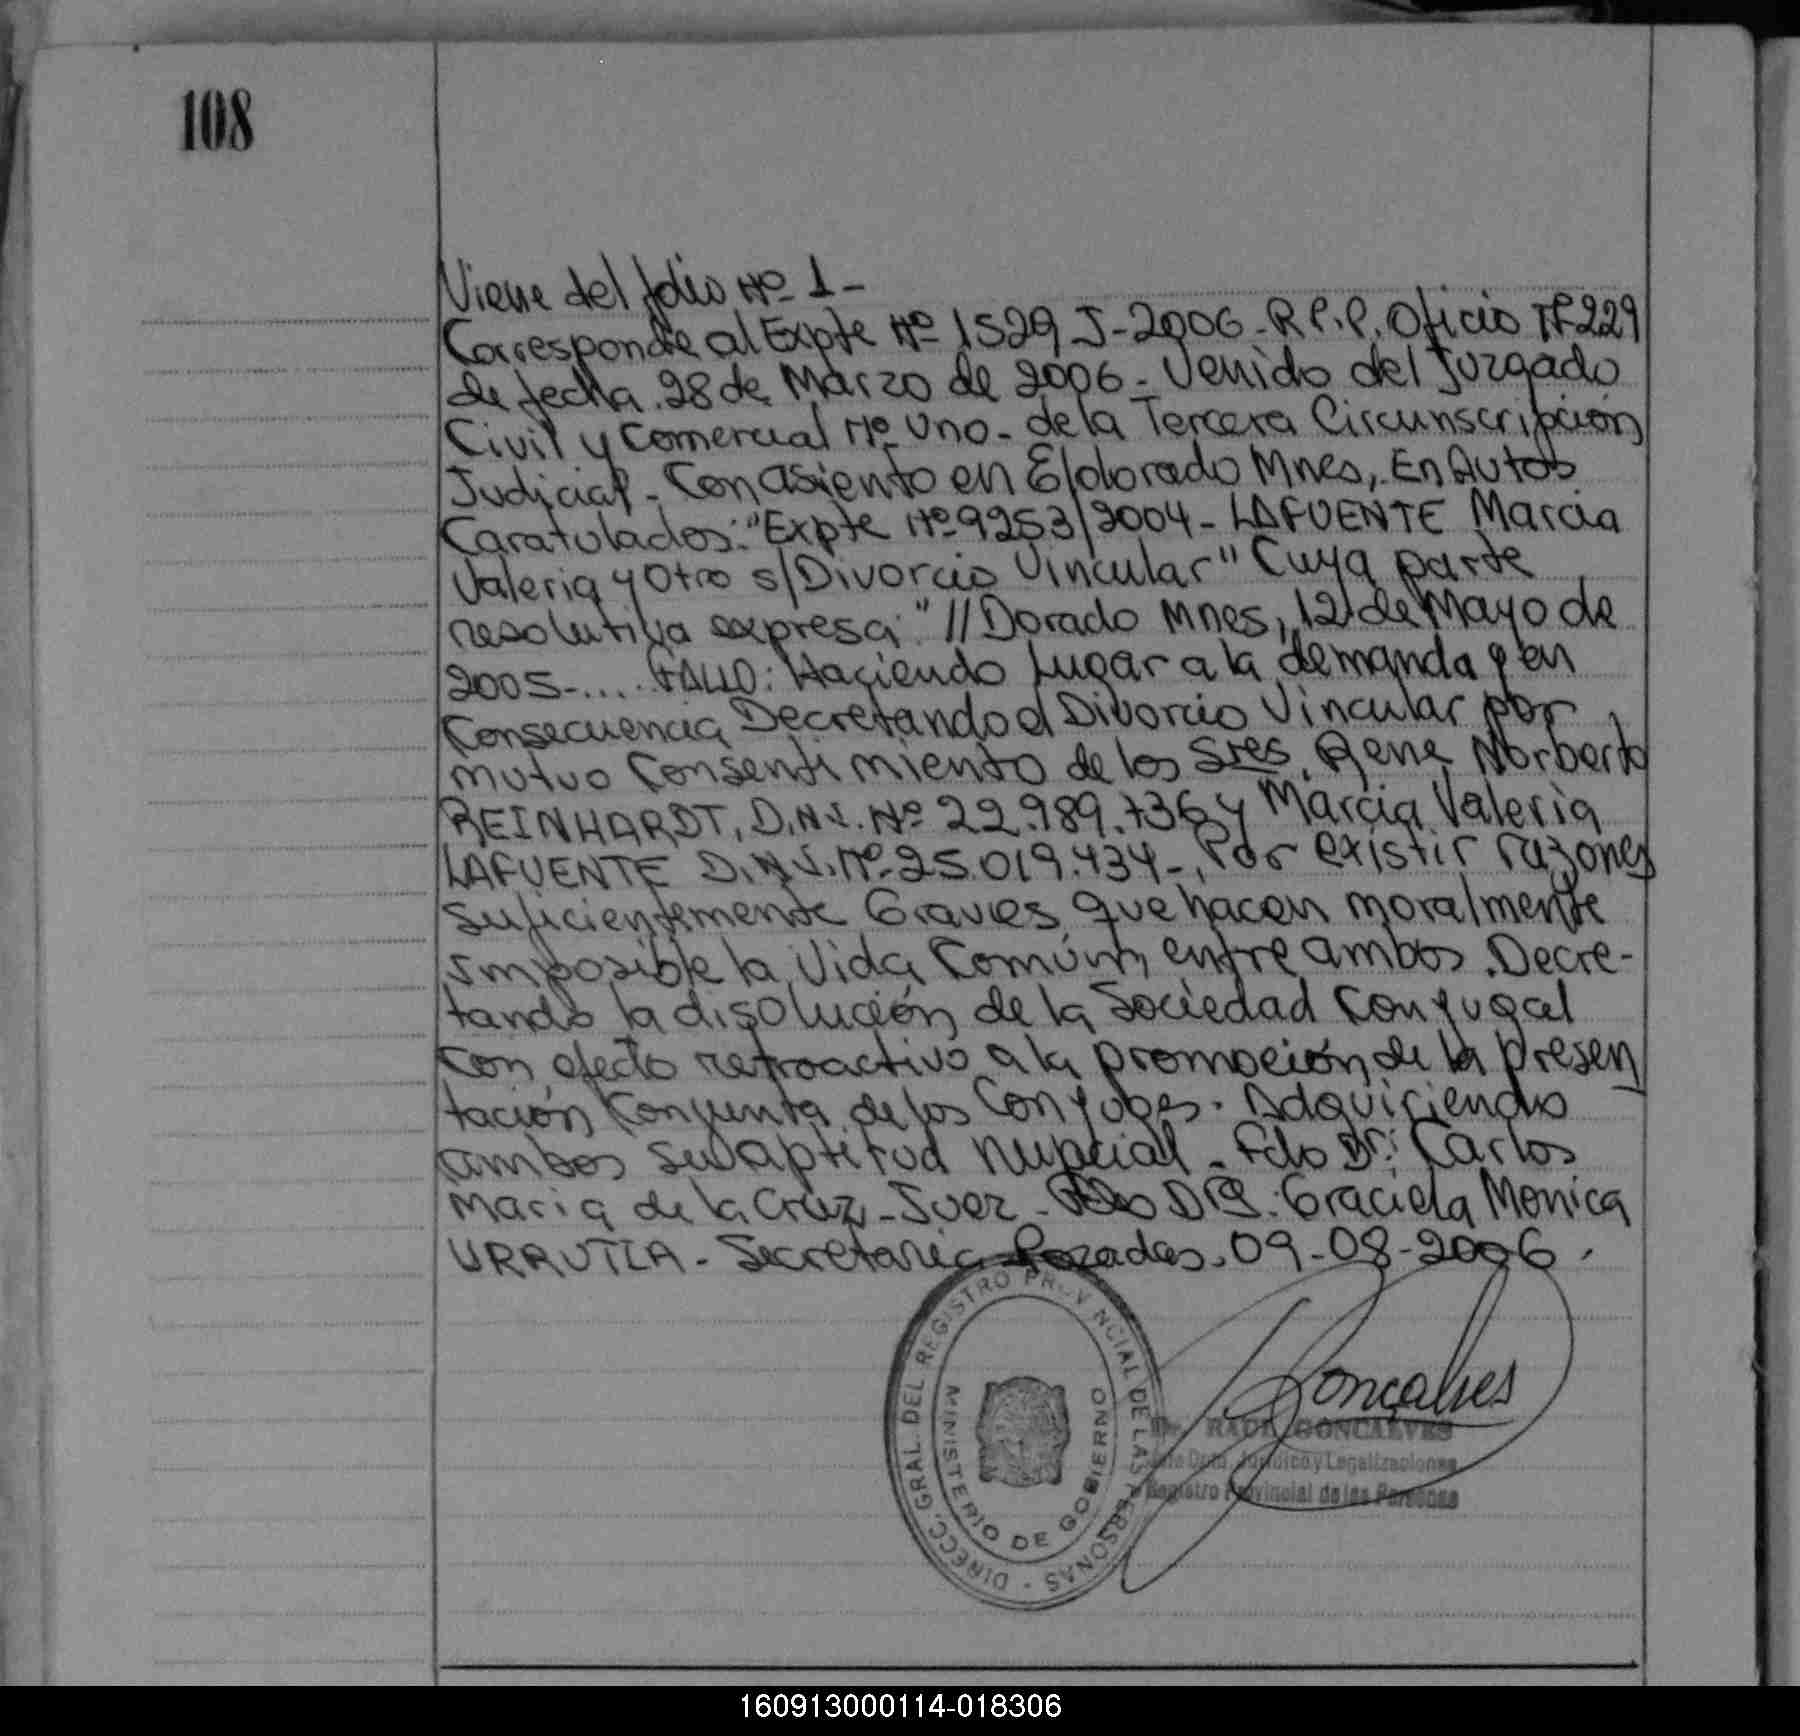 108
Viene del folio Nº 1-
Corresponde al Expte Nº 1529 J-2006-R.P.P. Oficio Nº 229
de fecha 28 de Marzo de 2006- Venido del Juzgado
Civil y Comercial Nº Uno- de la Tercera Circunscripción
Judicial- Con asiento en Eldorado Mnes, En Autos
Caratulados: "Expte Nº 9253/2004- LAFUENTE Marcia
Valeria y Otro s/Divorcio Vincular" Cuya parte
resolutiva expresa: "//Dorado Mnes, 12 de Mayo de
2005-..... FALLO: Haciendo Lugar a la demanda y en
Consecuencia Decretando el Divorcio Vincular por
mutuo Consentimiento de los Sres. Rene Norberto
REINHARDT, D.N.I. Nº 22.989.736 y Marcia Valeria
LAFUENTE D.N.I. Nº 25.019.434-, Por existir razones
suficientemente Graves que hacen moralmente
imposible la Vida Común entre ambos. Decre-
tando la disolución de la Sociedad Conyugal
Con efecto retroactivo a la promoción de la presen
tación Conjunta de los Conyuges. Adquiriendo
ambos su aptitud nupcial- Fdo Dr: Carlos
Maria de la Cruz- Juez- Fdo Dra: Graciela Monica
URRUTIA- Secretaria Pozadas, 09-08-2006.
DIRECC. GRAL. DEL REGISTRO PROVINCIAL DE LAS PERSONAS -
MINISTERIO DE GOBIERNO
Gonçalves
Dr. RAUL GONCALVES
Jefe Dpto. Jurídico y Legalizaciones
Registro Provincial de las Personas
160913000114-018306